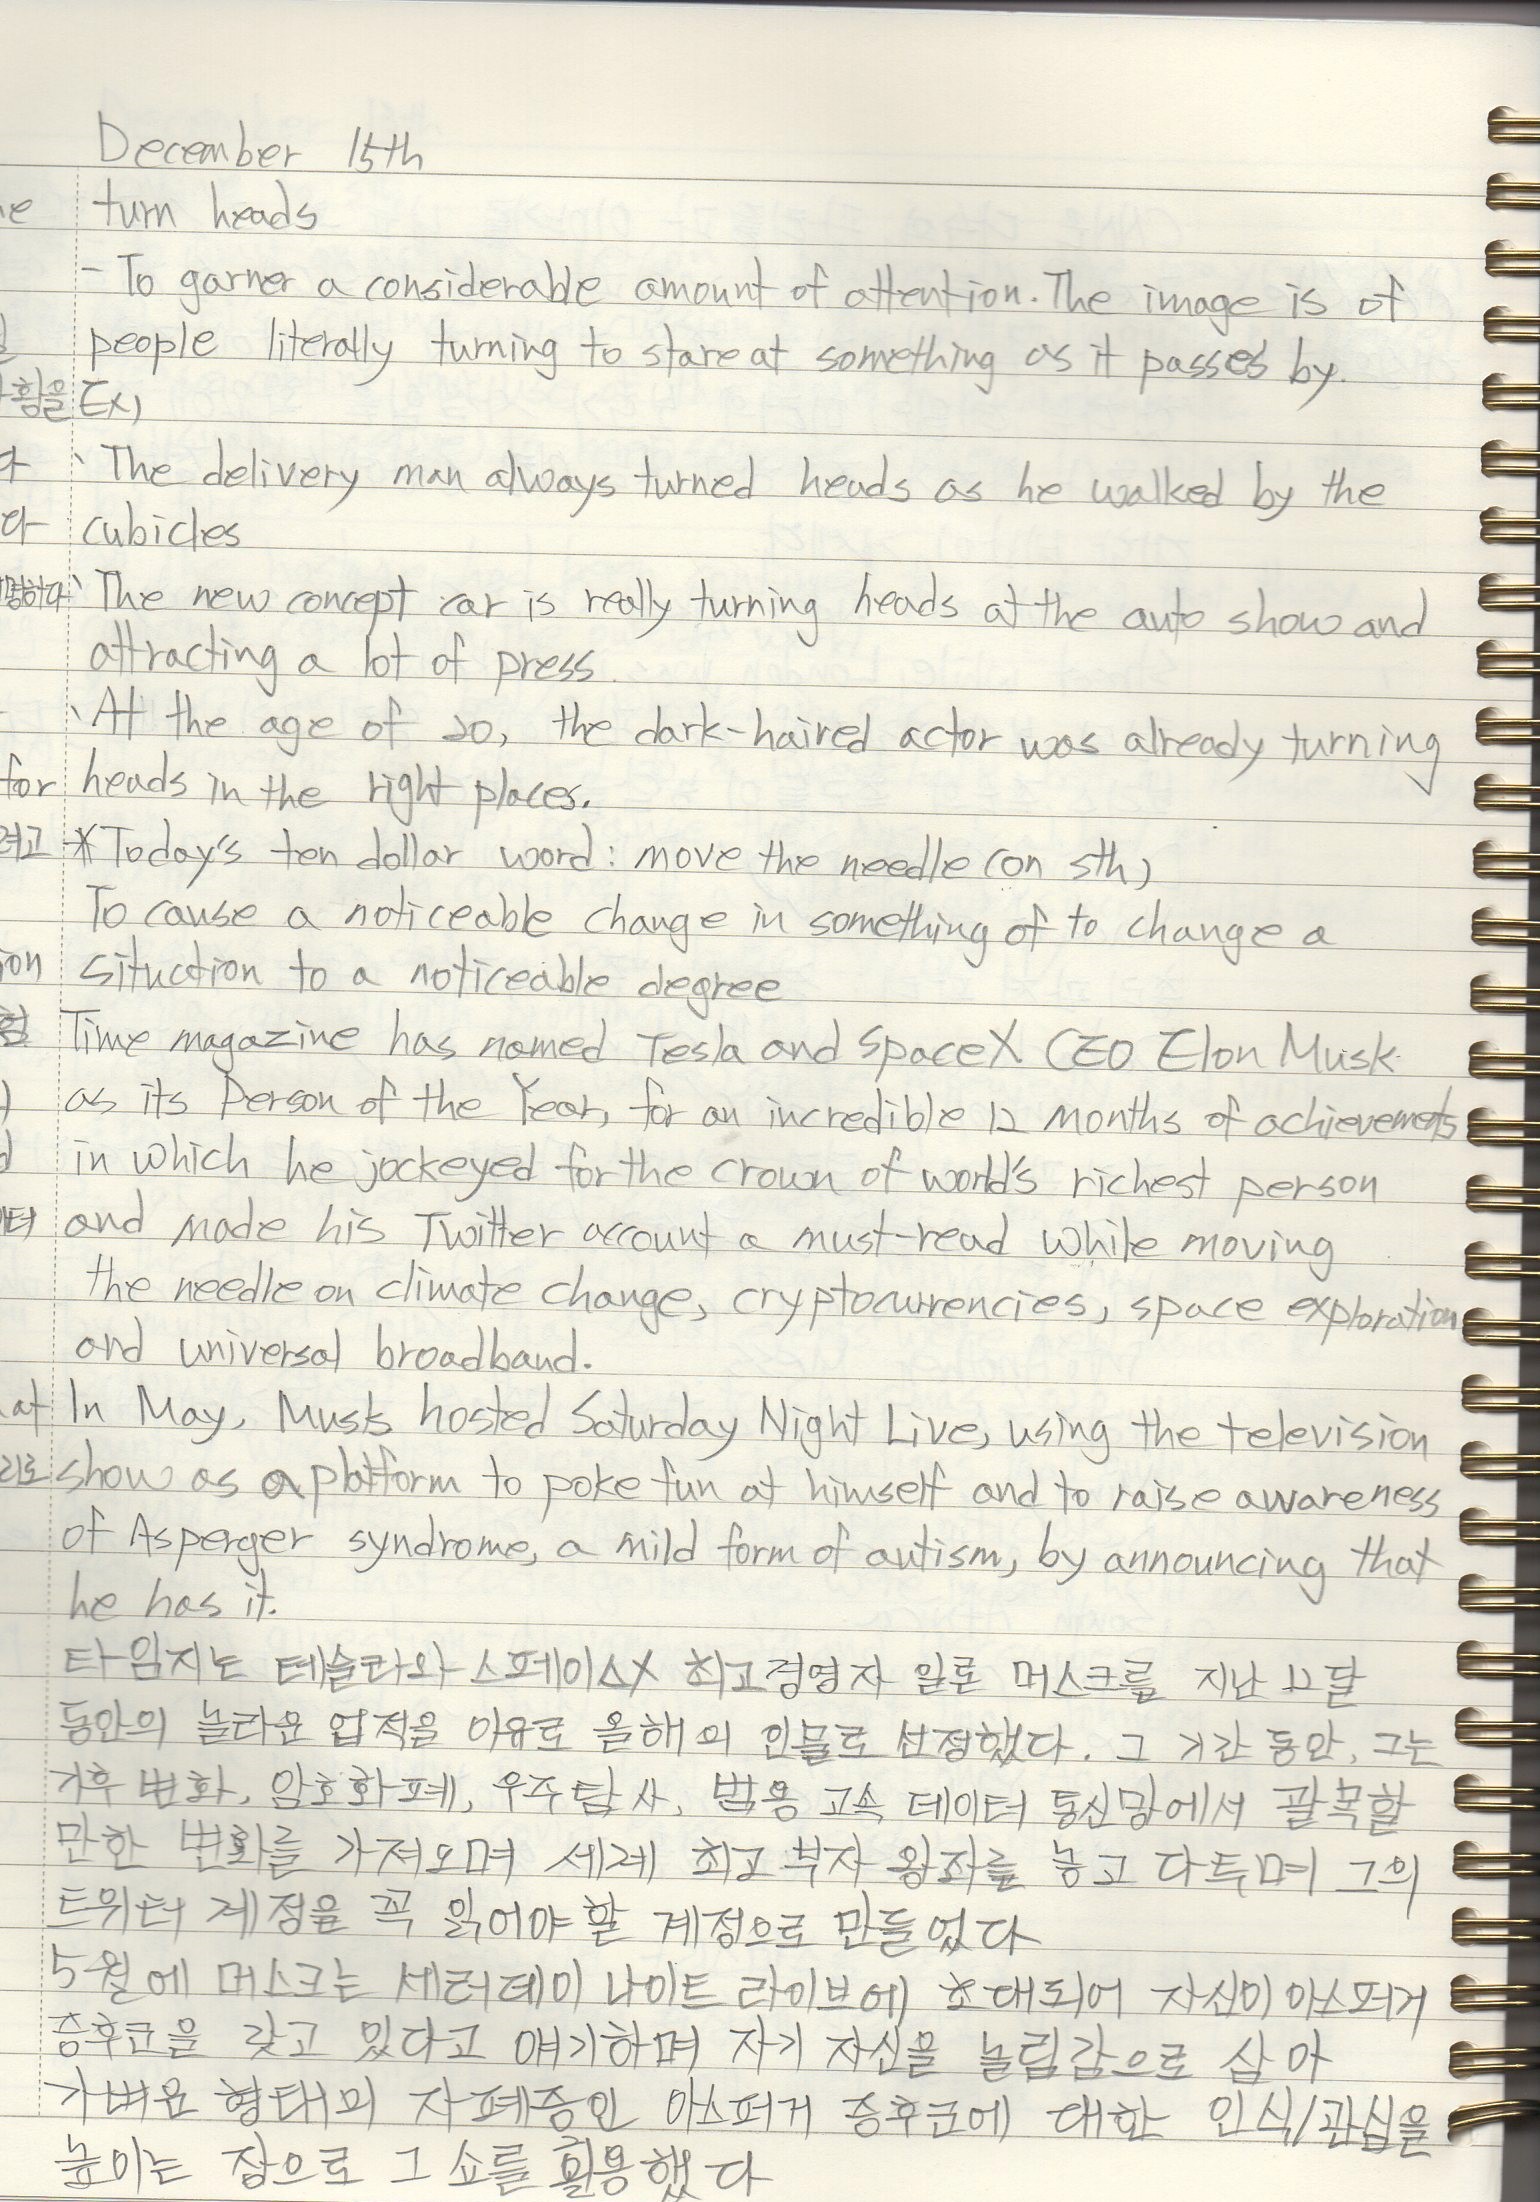 December 15th
turn heads
- To garner a considerable amount of attention. The image is of
people literally turning to stare at something as it passes by.
황을 Ex)
` The delivery man always turned heads as he walked by the
cubicles
` The new concept car is really turning heads at the auto show and
attracting a lot of press.
` At the age of 20, the dark-haired actor was already turning
for heads in the right places.
려고 *Today's ten dollar word : move the needle (on sth)
To cause a noticeable change in something of to change a
ion situation to a noticeable degree
Time magazine has named Tesla and SpaceX CEO Elon Musk
as its Person of the Year, for an incredible 12 months of achievemets
in which he jockeyed for the crown of world's richest person
and made his Twitter account a must-read while moving
the needle on climate change, cryptocurrencies, space exploration
and universal broadband.
at In May, Musk hosted Saturday Night Live, using the television
리로 show as a platform to poke fun at himself and to raise awareness
of Asperger syndrome, a mild form of autism, by announcing that
he has it.
타임지는 테슬라와 스페이스X 최고경영자 일론 머스크를 지난 12달
동안의 놀라운 업적을 이유로 올해의 인물로 선정했다. 그 기간 동안, 그는
기후 변화, 암호화폐, 우주탐사, 범용 고속 데이터 통신망에서 괄목할
만한 변화를 가져오며 세계 최고 부자 왕좌를 놓고 다투며 그의
트위터 계정을 꼭 읽어야 할 계정으로 만들었다
5월에 머스크는 세터데이 나이트 라이브에 초대되어 자신이 아스퍼거
증후군을 갖고 있다고 얘기하며 자기 자신을 놀림감으로 삼아
가벼운 형태의 자폐증인 아스퍼거 증후군에 대한 인식/관심을
높이는 장으로 그 쇼를 활용했다